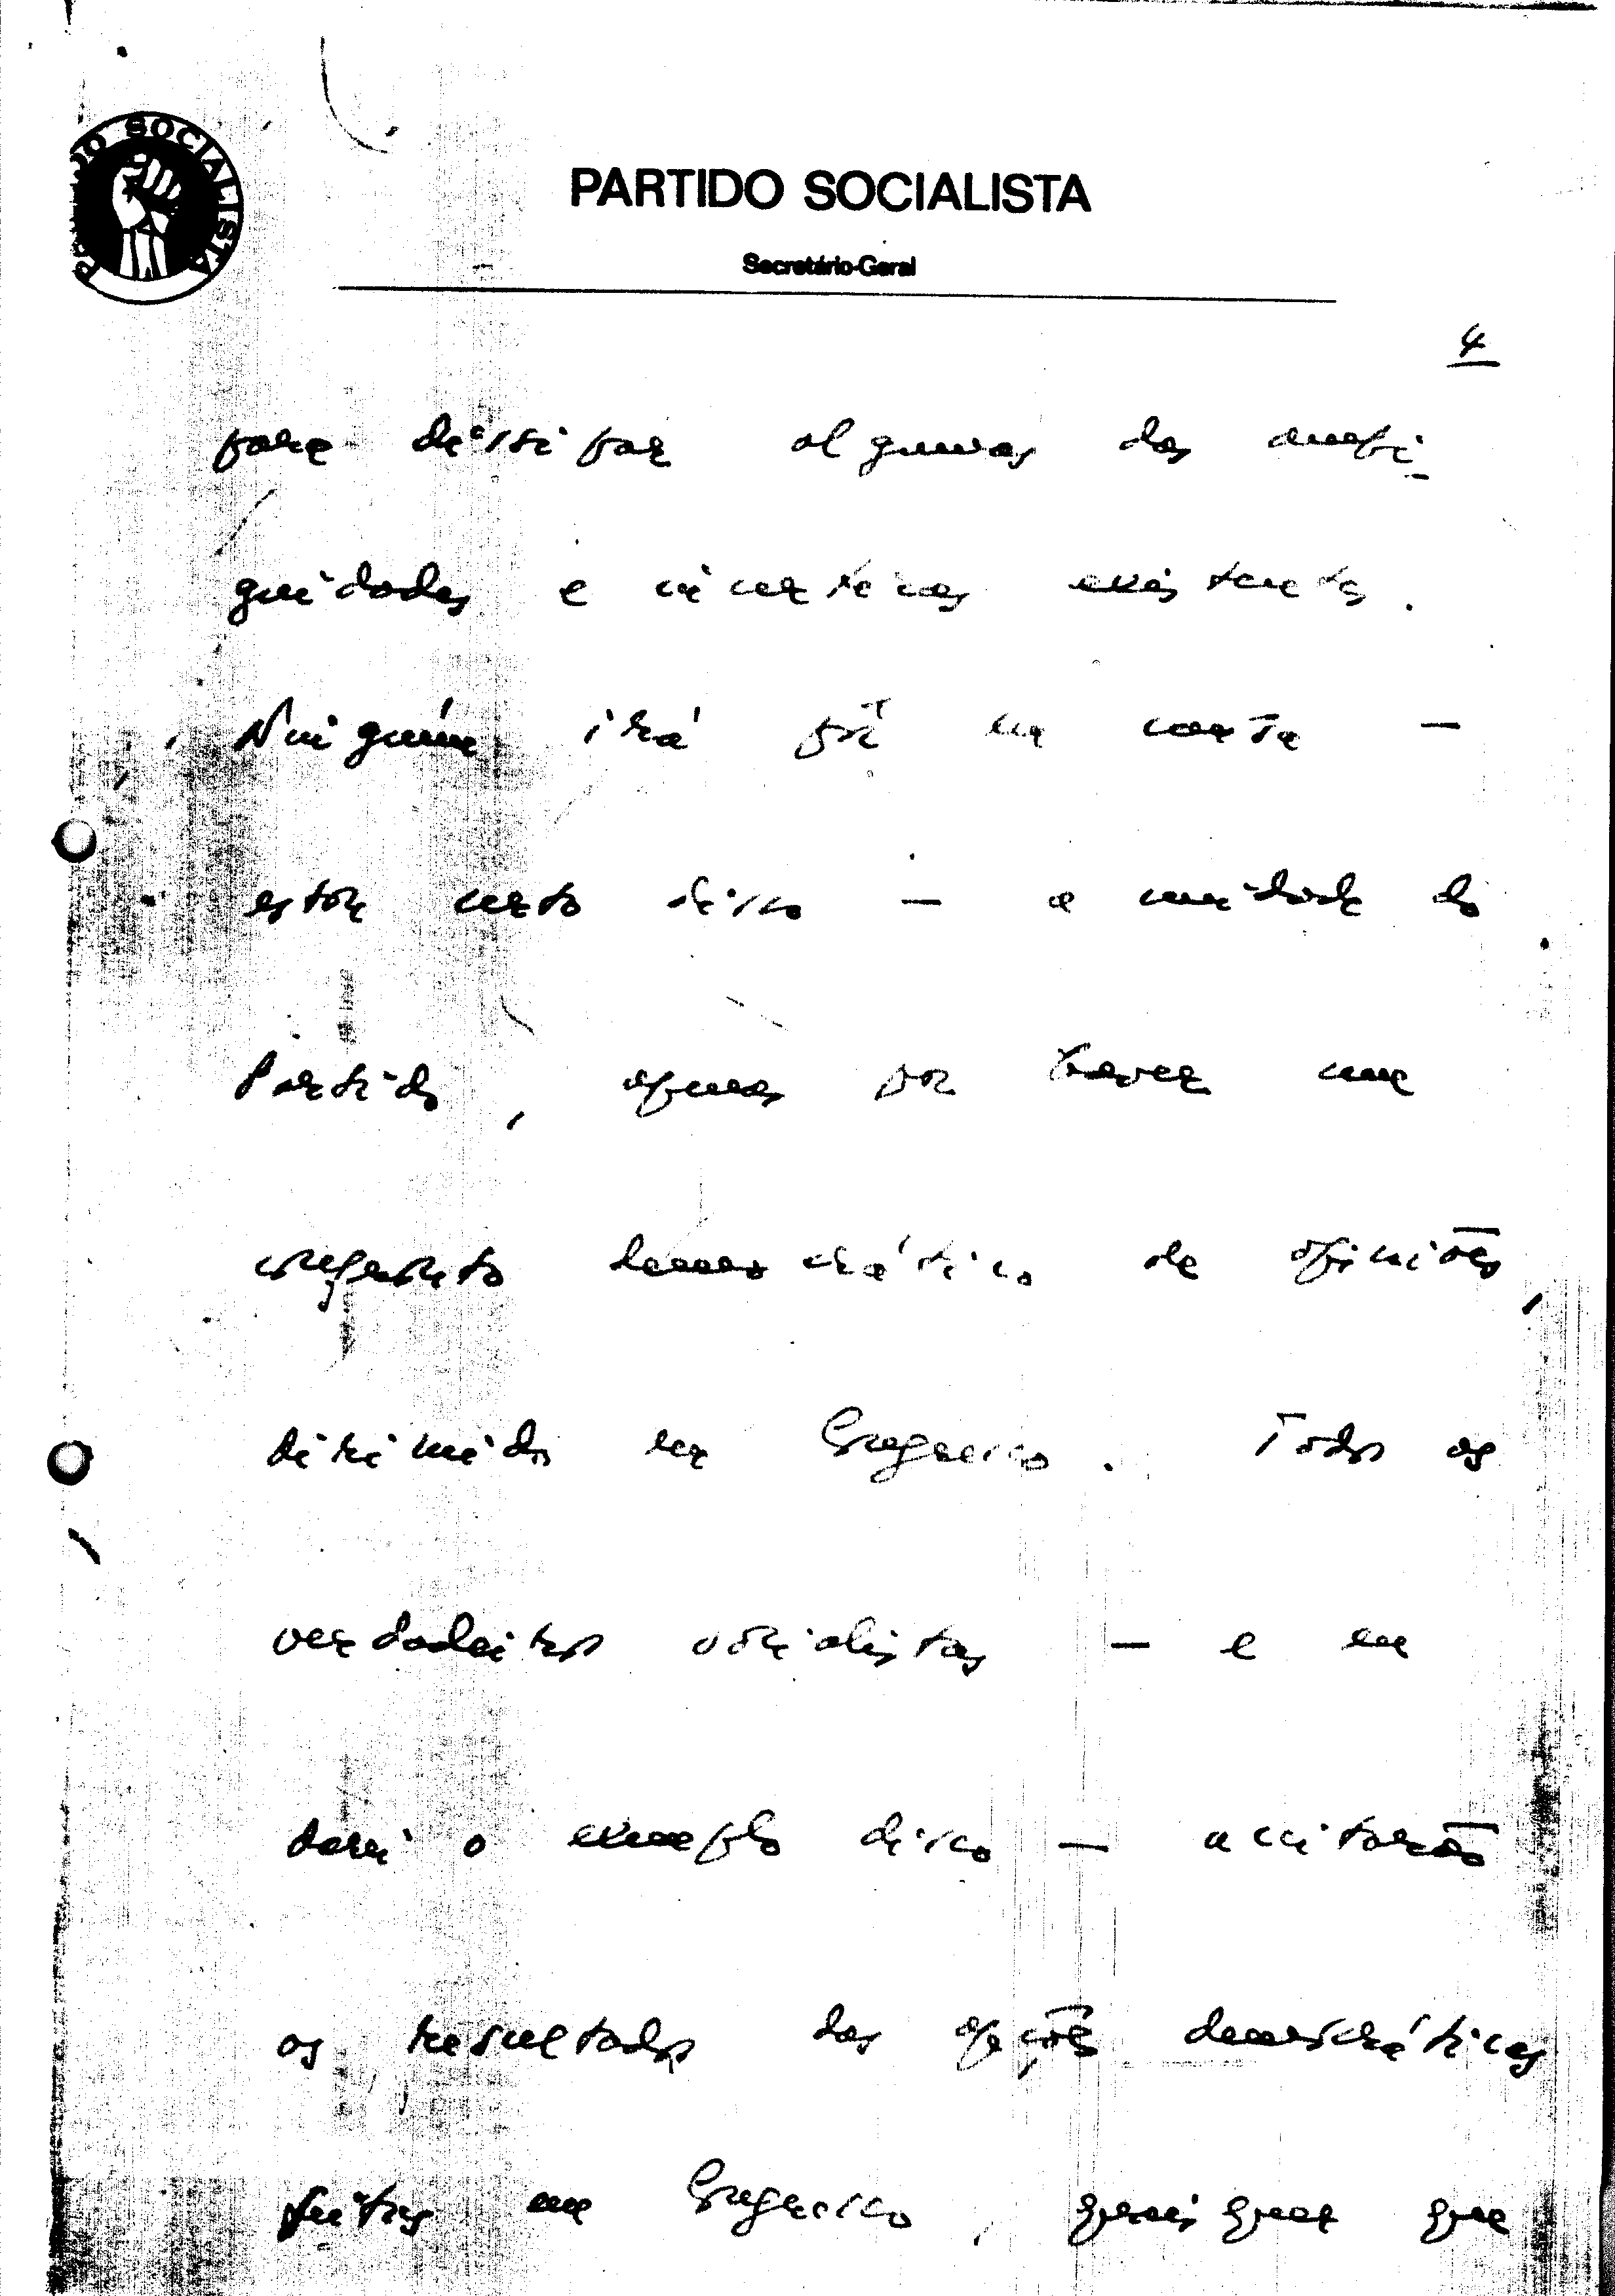 PARTIDO SOCIALISTA
PARTIDO SOCIALISTA
Secretário-Geral
4
para dissipar algumas das ambi-
guidades e incertezas existentes.
Ninguém irá pôr em causa -
estou certo disso - a unidade do
Partido, apenas por haver um
confronto democrático de opiniões,
dirimido em Congresso. Todos os
verdadeiros socialistas - e eu
darei o exemplo disso - aceitarão
os resultados das opções democráticas
feitas em Congresso, quaisquer que